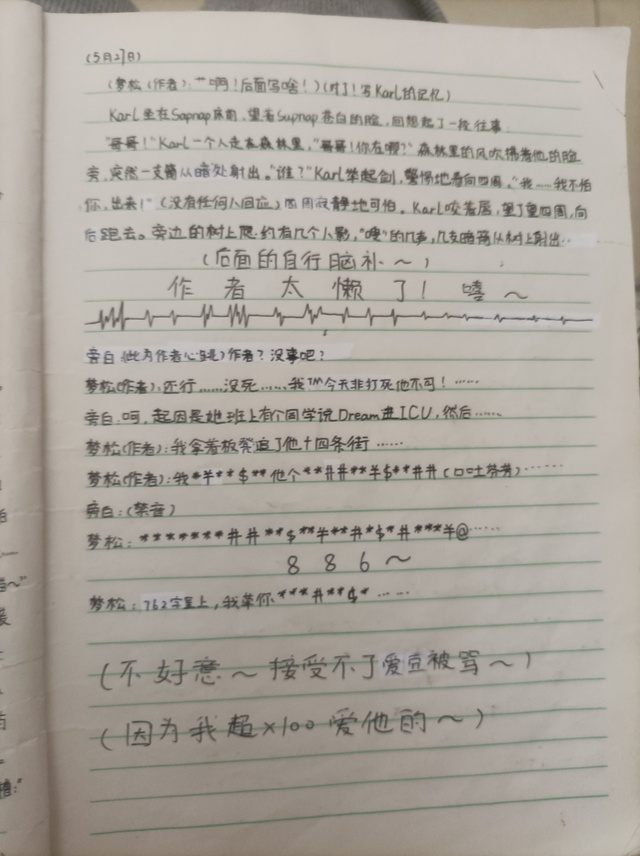 (5月27日)
(梦松(作者):"啊!后面写啥!)(对了!写Karl的记忆)
Karl坐在Sapnap床前,望着Supnap苍白的脸,回想起了一段往事.
"哥哥!"Karl一个人走在森林里,"哥哥!你在哪?"森林里的风吹拂着他的脸
旁,突然一支箭从暗处射出。"谁?"Karl举起剑,警惕地看向四周。"我……我不怕
你,出来!"(没有任何人回应)四周寂静地可怕。Karl咬着唇,望了望四周,向
后跑去。旁边的树上爬约有几个人影,"嗖"的几声,几支暗箭从树上射出…
(后面的自行脑补~)
作者太懒了!嘻~
旁白(此为作者心):作者?没事吧?
梦松(作者):还行……没死……我TM今天非打死他不可!……
旁白:呵,起因是她班上有个同学说Dream进ICU,然后……
梦松(作者):我拿着板凳追了他十四条街……
梦松(作者):我*羊**$**他个**井井**羊$**井井(口吐芬芳)……
旁白:(禁音)
梦松:*******井井**$**羊**井*$*井***羊@……
886~
梦松:762宇宙上,我草你***井**$*……
(不好意~接受不了爱豆被骂~)
(因为我超×100爱他的~)